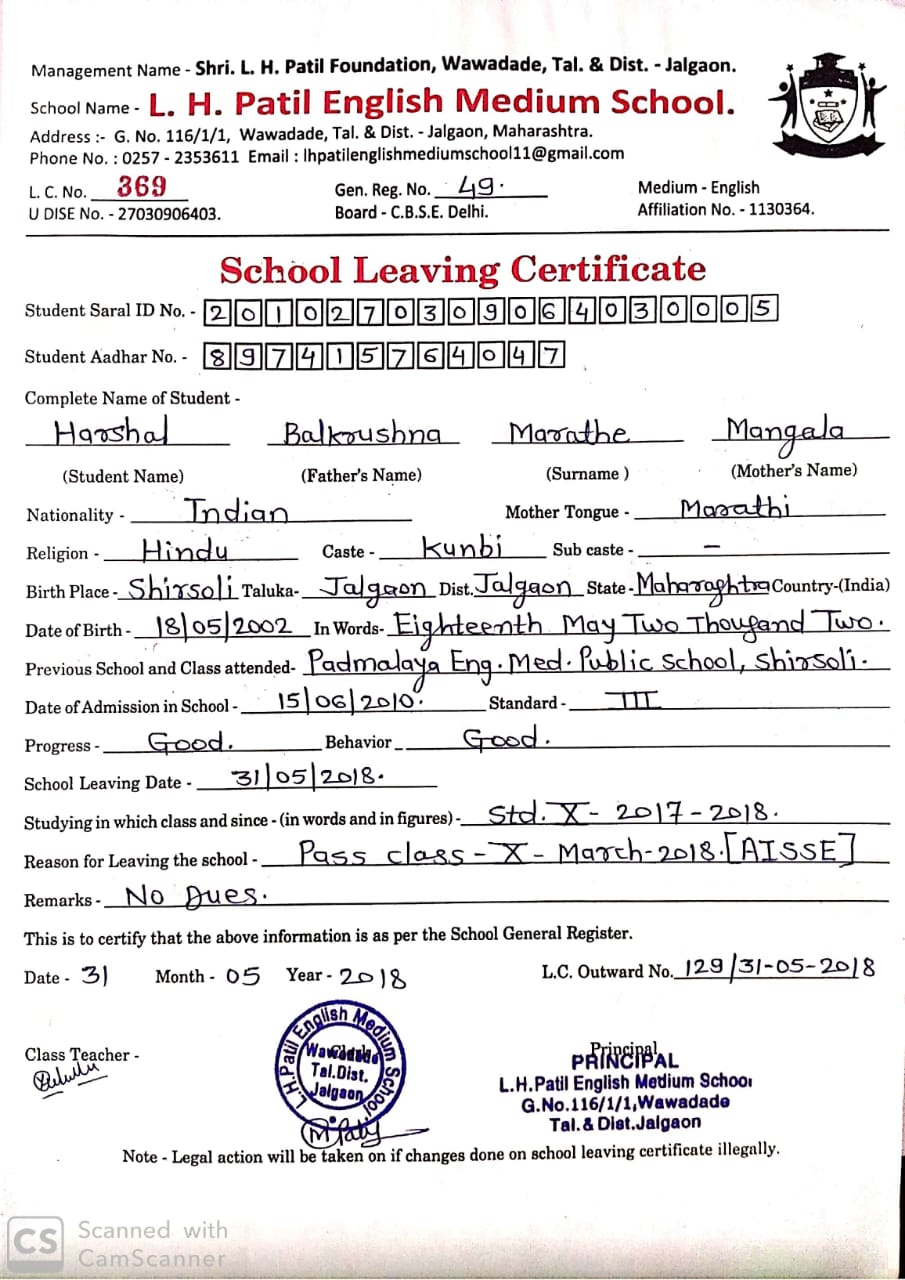 Management Name - Shri. L. H. Patil Foundation, Wawadade, Tal. & Dist. - Jalgaon.
School Name - L. H. Patil English Medium School.
Address :- G. No. 116/1/1, Wawadade, Tal. & Dist. - Jalgaon, Maharashtra.
Phone No. : 0257 - 2353611 Email : lhpatilenglishmediumschool11@gmail.com
L. C. No. 369 Gen. Reg. No. 49. Medium - English
U DISE No. - 27030906403. Board - C.B.S.E. Delhi. Affiliation No. - 1130364.
School Leaving Certificate
Student Saral ID No. - 2010270309064030005
Student Aadhar No. - 897415764047
Complete Name of Student -
Harshal Balkrushna Marathe Mangala
(Student Name) (Father's Name) (Surname ) (Mother's Name)
Nationality - Indian Mother Tongue - Marathi
Religion - Hindu Caste - Kunbi Sub caste - –
Birth Place - Shirsoli Taluka- Jalgaon Dist. Jalgaon State - Maharashtra Country-(India)
Date of Birth - 18/05/2002 In Words- Eighteenth May Two Thousand Two.
Previous School and Class attended- Padmalaya Eng. Med. Public School, Shirsoli.
Date of Admission in School - 15/06/2010. Standard - III
Progress - Good. Behavior Good.
School Leaving Date - 31/05/2018.
Studying in which class and since - (in words and in figures) - Std. X - 2017 - 2018.
Reason for Leaving the school - Pass class - X - March - 2018. [AISSE]
Remarks - No Dues.
This is to certify that the above information is as per the School General Register.
Date - 31 Month - 05 Year - 2018 L.C. Outward No. 129/31-05-2018
Class Teacher -
L.H.Patil English Medium School
Wawadade
Tal.Dist.
Jalgaon
Principal
PRINCIPAL
L.H.Patil English Medium School
G.No.116/1/1,Wawadade
Tal.& Dist.Jalgaon
Note - Legal action will be taken on if changes done on school leaving certificate illegally.
CS Scanned with
CamScanner